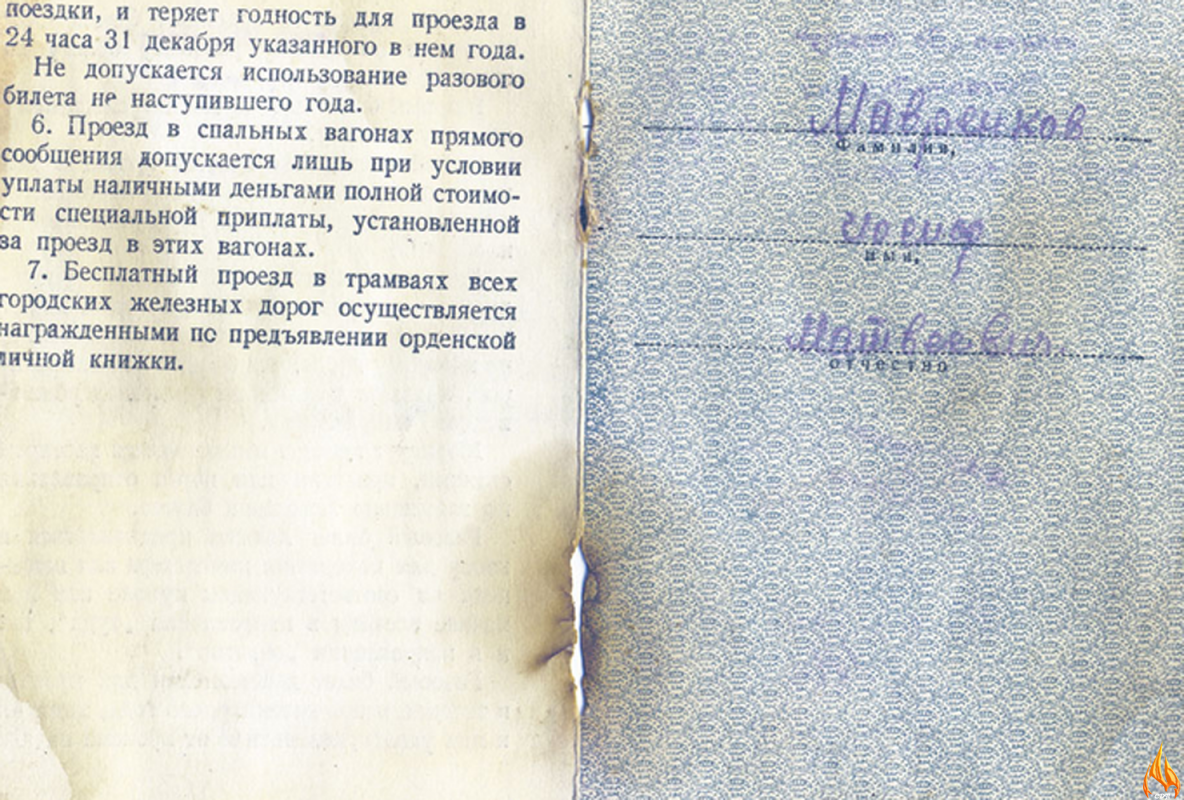 поездки, и теряет годность для проезда в
24 часа 31 декабря указанного в нем года.
Не допускается использование разового
билета не наступившего года.
6. Проезд в спальных вагонах прямого
сообщения допускается лишь при условии
уплаты наличными деньгами полной стоимо-
сти специальной приплаты, установленной
за проезд в этих вагонах.
7. Бесплатный проезд в трамваях всех
городских железных дорог осуществляется
награжденными по предъявлении орденской
личной книжки.
Мавренков
Фамилия,
Иосиф
имя,
Матвеевич
отчество